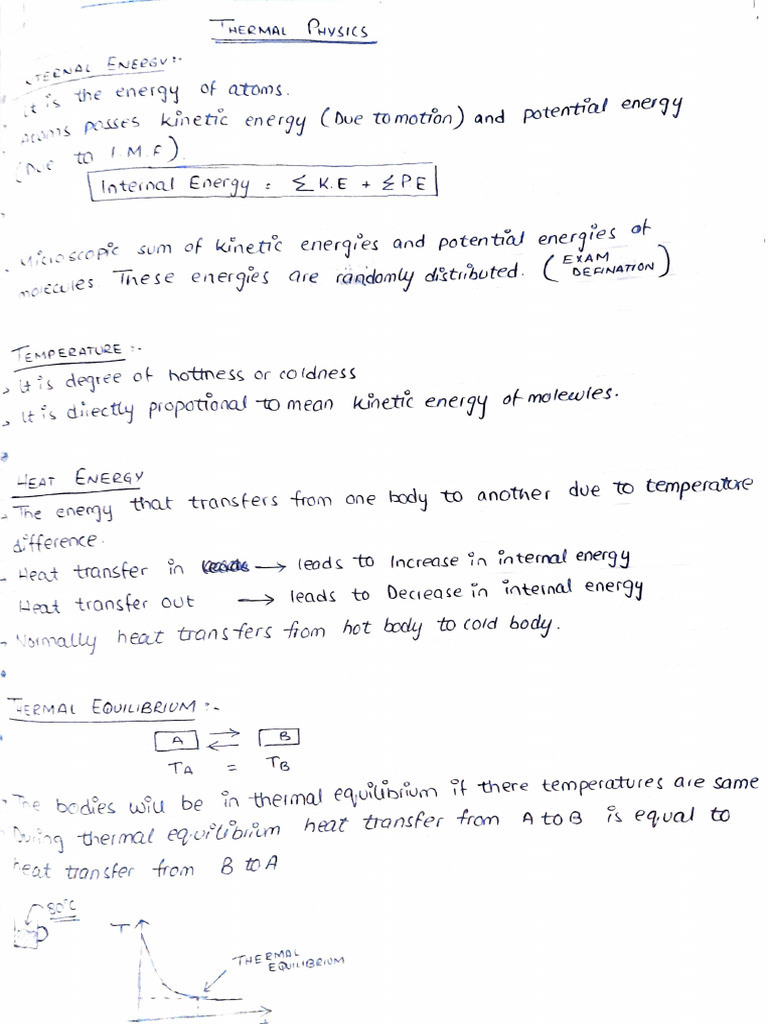 THERMAL PHYSICS
TERNAL ENERGY:-
It is the energy of atoms.
Atoms posses kinetic energy (Due to motion) and potential energy
(Due to I.M.F).
Internal Energy = ΣK.E + ΣPE
Microscopic sum of kinetic energies and potential energies of
molecules. These energies are randomly distributed. (EXAM
DEFINATION)
TEMPERATURE:-
It is degree of hottness or coldness
It is directly propotional to mean kinetic energy of molecules.
HEAT ENERGY
The energy that transfers from one body to another due to temperature
difference.
- Heat transfer in → leads to Increase in internal energy
Heat transfer out → leads to Decrease in internal energy
- Normally heat transfers from hot body to cold body.
THERMAL EQUILIBRIUM:-
A ⇄ B
TA = TB
The bodies will be in thermal equilibrium if there temperatures are same
During thermal equilibrium heat transfer from A to B is equal to
heat transfer from B to A
80°C
T
THERMAL
EQUILIBRIUM